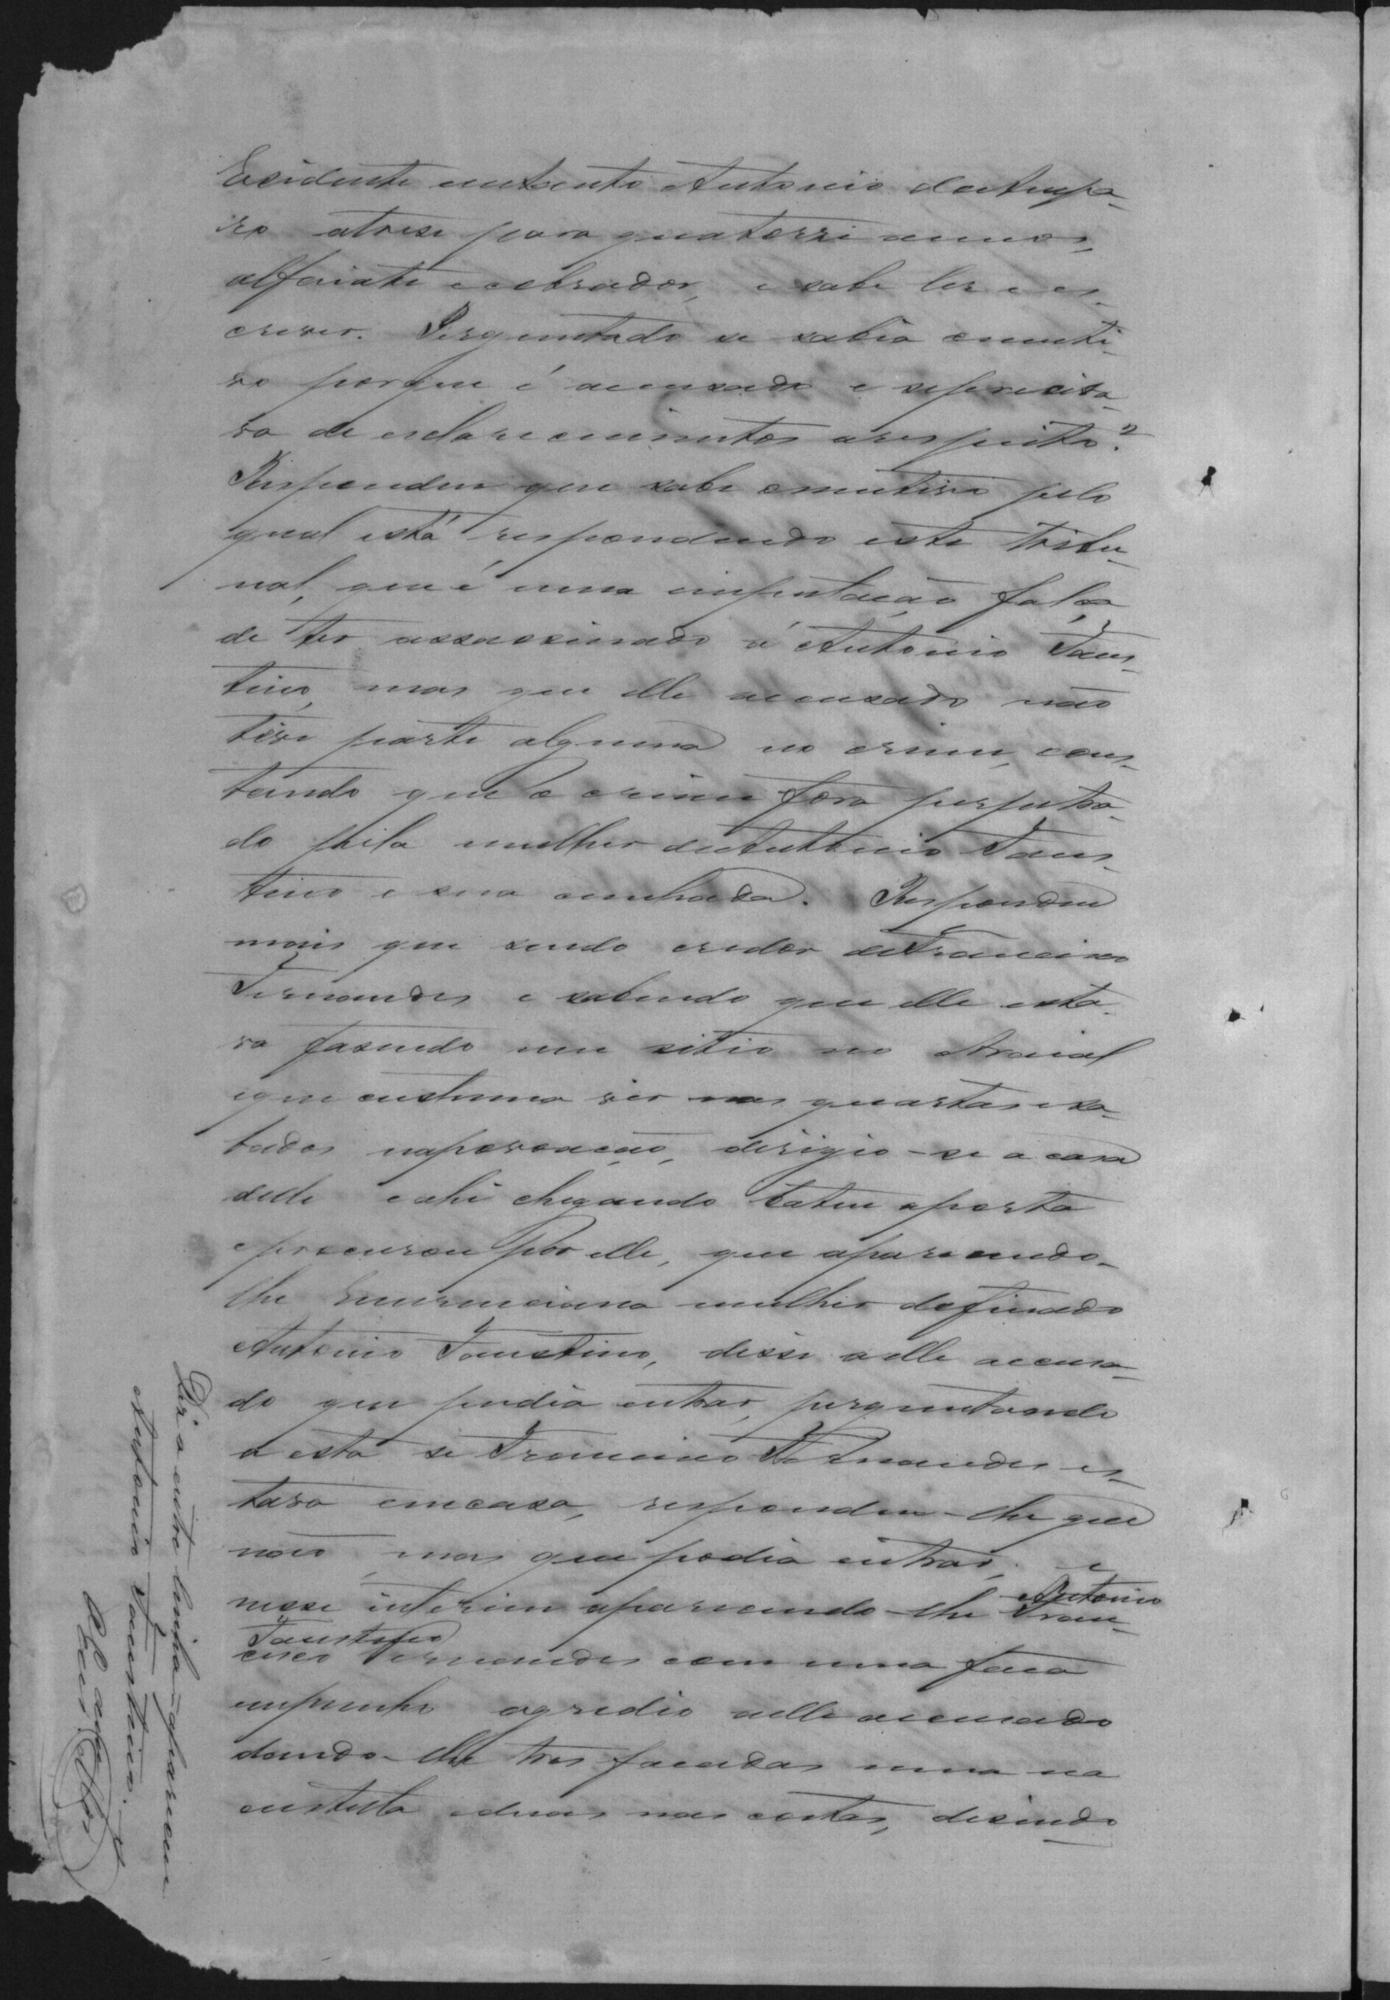 Residente emSanto Antonio daAmpa-
ro atrese para quatorze annos,
alfaiate e cobrador, e sabe ler e es-
crever. Perguntado se sabia omoti-
vo porque é accusado e seprecisa-
va de esclarecimentos arespeito?
Respondeu que sabe omotivo pelo
qual está respondendo este tribu-
nal, que é uma imputação falsa
de ter assassinado á Antonio Faus-
tino, mas que elle accusado não
teve parte alguma no crime, cons-
tando que o crime fora perpetra-
do pela mulher deAntonio Faus-
tino e sua cunhada. Respondeu
mais que sendo credor deFrancisco
Fernandes e sabendo que elle esta-
va fasendo um sitio no Arraial
eque custuma vir nas quartas e sa-
bados napovoação, dirigio-se a casa
delle e ahi chegando bateu aporta
eprocurou por elle, que aparecendo-
lhe Emerenciana mulher dofinado
Antonio Faustino, disse aelle accusa-
do que podia entrar, perguntando
a esta se Francisco Fernandes es-
tava emcasa, respondeu-lhe que
não, mas que podia entrar, e
nesse interim aparecendo-lhe Antonio Fran-
Faustino cisco Fernandes com uma faca
empunho agredio aelle accusado
dando-lhe tres facadas uma na
custela eduas nas costas, disendo
Diz a entre linha-apareceu
Antonio Faustino.